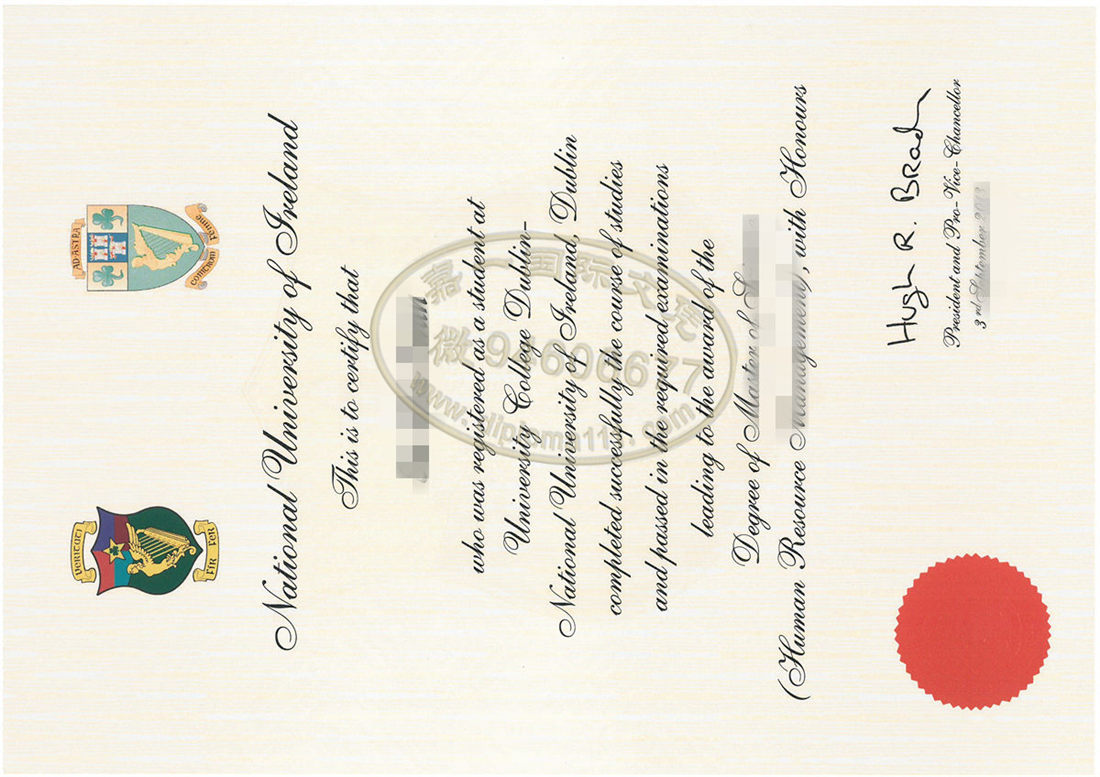 VERITATI
FIR FER
AD ASTRA
COTHROM FÉINNE
National University of Ireland
This is to certify that
who was registered as a student at
University College Dublin-
National University of Ireland, Dublin
completed successfully the course of studies
and passed in the required examinations
leading to the award of the
Degree of Master of
(Human Resource Management), with Honours
Hugh R. Brady
President and Pro-Vice-Chancellor
3rd September
嘉一国际文凭
微94606677